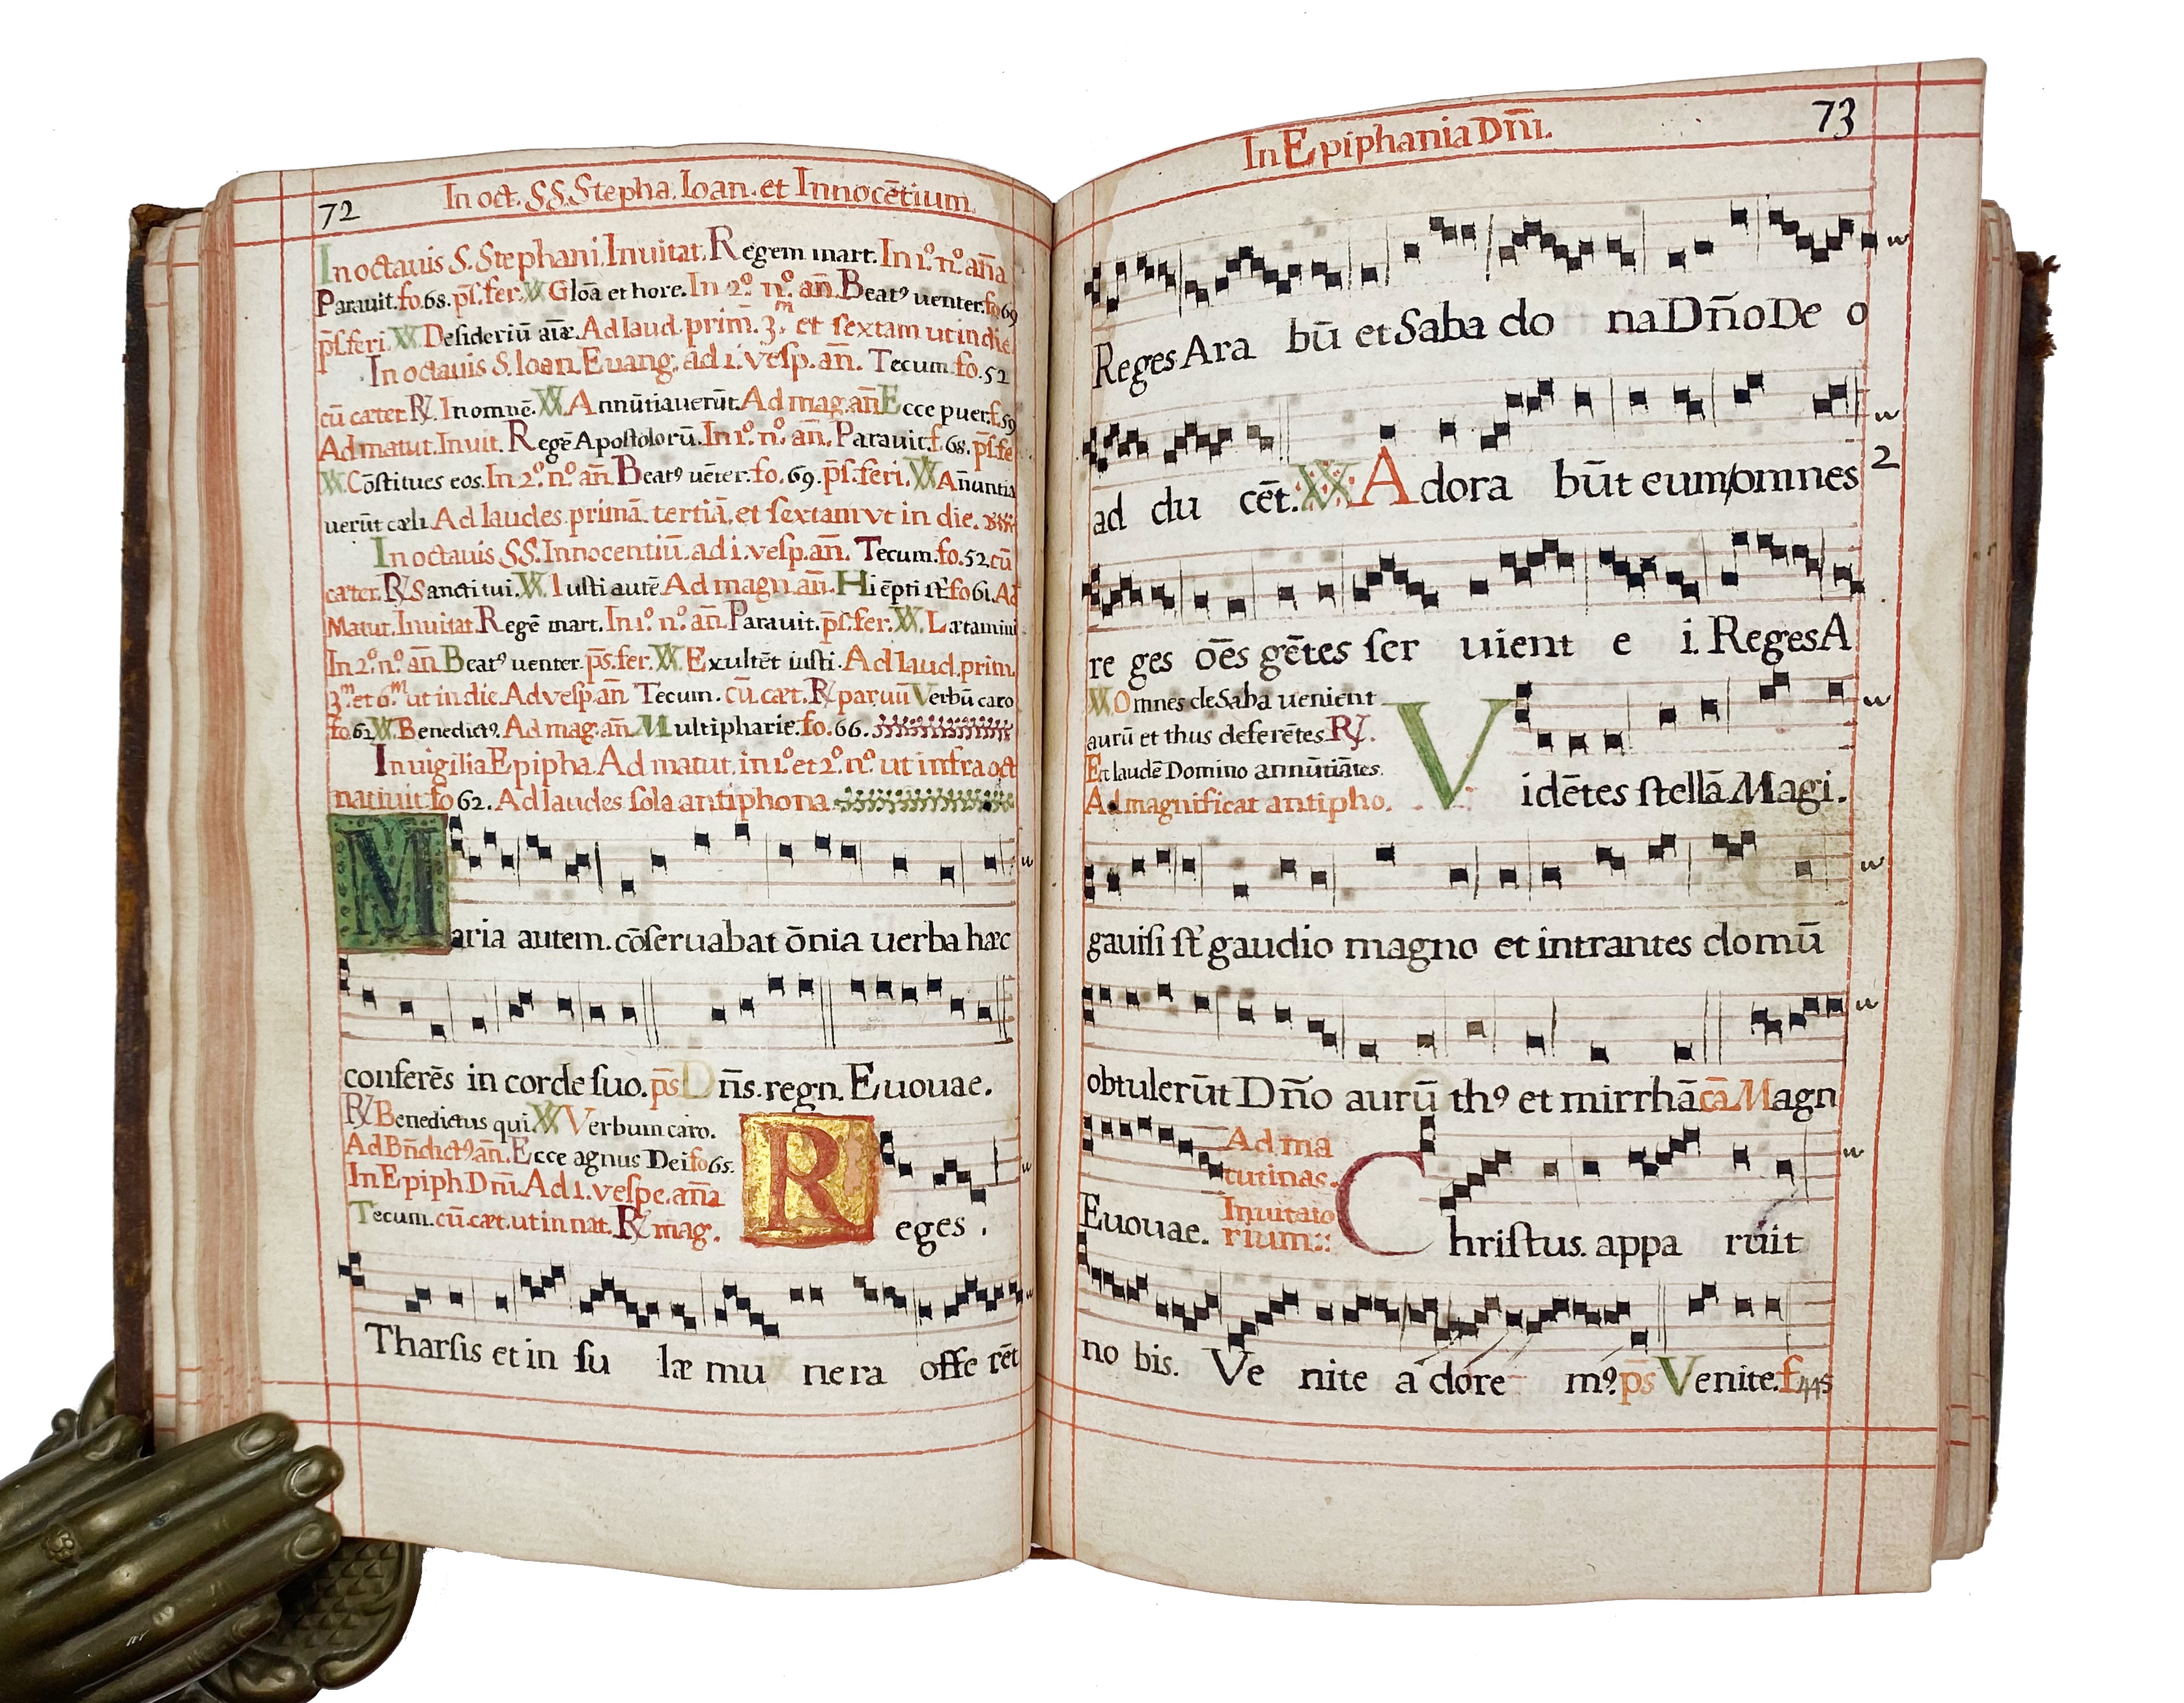 72
In oct. SS. Stepha. Ioan. et Innocētium.
In octauis S. Stephani. Inuitat. Regem mart. In 1.º n.º aña
Parauit. fo. 68. p̄s. fer. ℣ Gloā et hore. In 2.º n.º añ. Beatꝰ uenter. fo 69
p̄s. feri. ℣ Desideriū aīæ. Ad laud. prim̄. 3.ᵐ et sextam ut in die
In octauis S. Ioan. Euang. ad i. vesp. añ. Tecum. fo. 52
cū cæter. ℟. In omnē. ℣ Annūtiauerūt. Ad mag. añ Ecce puer. f. 59
Ad matut. Inuit. Regē Apostolorū. In 1.º n.º añ. Parauit f. 68. p̄s. fe
℣. Cōstitues eos. In 2.º n.º añ Beatꝰ uēter. fo. 69. p̄s. feri. ℣ Añuntia
uerūt cæli. Ad laudes. primā. tertiā. et sextam vt in die.
In octauis SS. Innocentiū. ad i. vesp. añ. Tecum. fo. 52. cū
cæter. ℟ Sancti tui. ℣. Iusti autē Ad magn. añ. Hi ēpti st̄. fo 61. Ad
Matut. Inuitat. Regē mart. In 1.º n.º añ. Parauit. p̄s. fer. ℣. Lætamini
In 2.º n.º añ. Beatꝰ uenter. p̄s. fer. ℣ Exultēt iusti. Ad laud. prim.
3.ᵐ et 6.ᵐ ut in die. Ad vesp. añ Tecum. cū. cæt. ℟ paruū Verbū caro
fo. 62 ℣. Benedictꝰ. Ad mag. añ Multipharie. fo. 66.
In uigilia Epipha. Ad matut. in 1.º et 2.º n.º ut infra oct
natiuit. fo 62. Ad laudes sola antiphona
Maria autem. cōseruabat ōnia uerba hæc
conferēs in corde suo. p̄s Dñs. regn. Euouae.
℟ Benedictus qui. ℣ Verbum caro.
Ad Bñdictꝰ añ. Ecce agnus Dei fo 65.
In Epiph. Dñi. Ad 1. vespe. aña
Tecum. cū. cæt. ut in nat. ℟ mag.
Reges.
Tharsis et in su læ mu nera offe rēt
In Epiphania Dñi.
73
Reges Ara bū et Saba do na Dño De o
ad du cēt. ℣ Adora būt eum, omnes 2
re ges ōēs gētes ser uient e i. Reges A
℣ Omnes de Saba uenient
aurū et thus deferētes ℟.
Et laudē Domino annūtiātes.
Ad magnificat antipho.
Vidētes stellā Magi.
gauisi st̄ gaudio magno et intrantes domū
obtulerūt Dño aurū thꝰ et mirrhā cā. Magn
Euouae.
Ad ma
tutinas.
Inuitato
rium::
Christus. appa ruit
no bis. Ve nite a dore mꝰ. p̄s Venite. f. 445